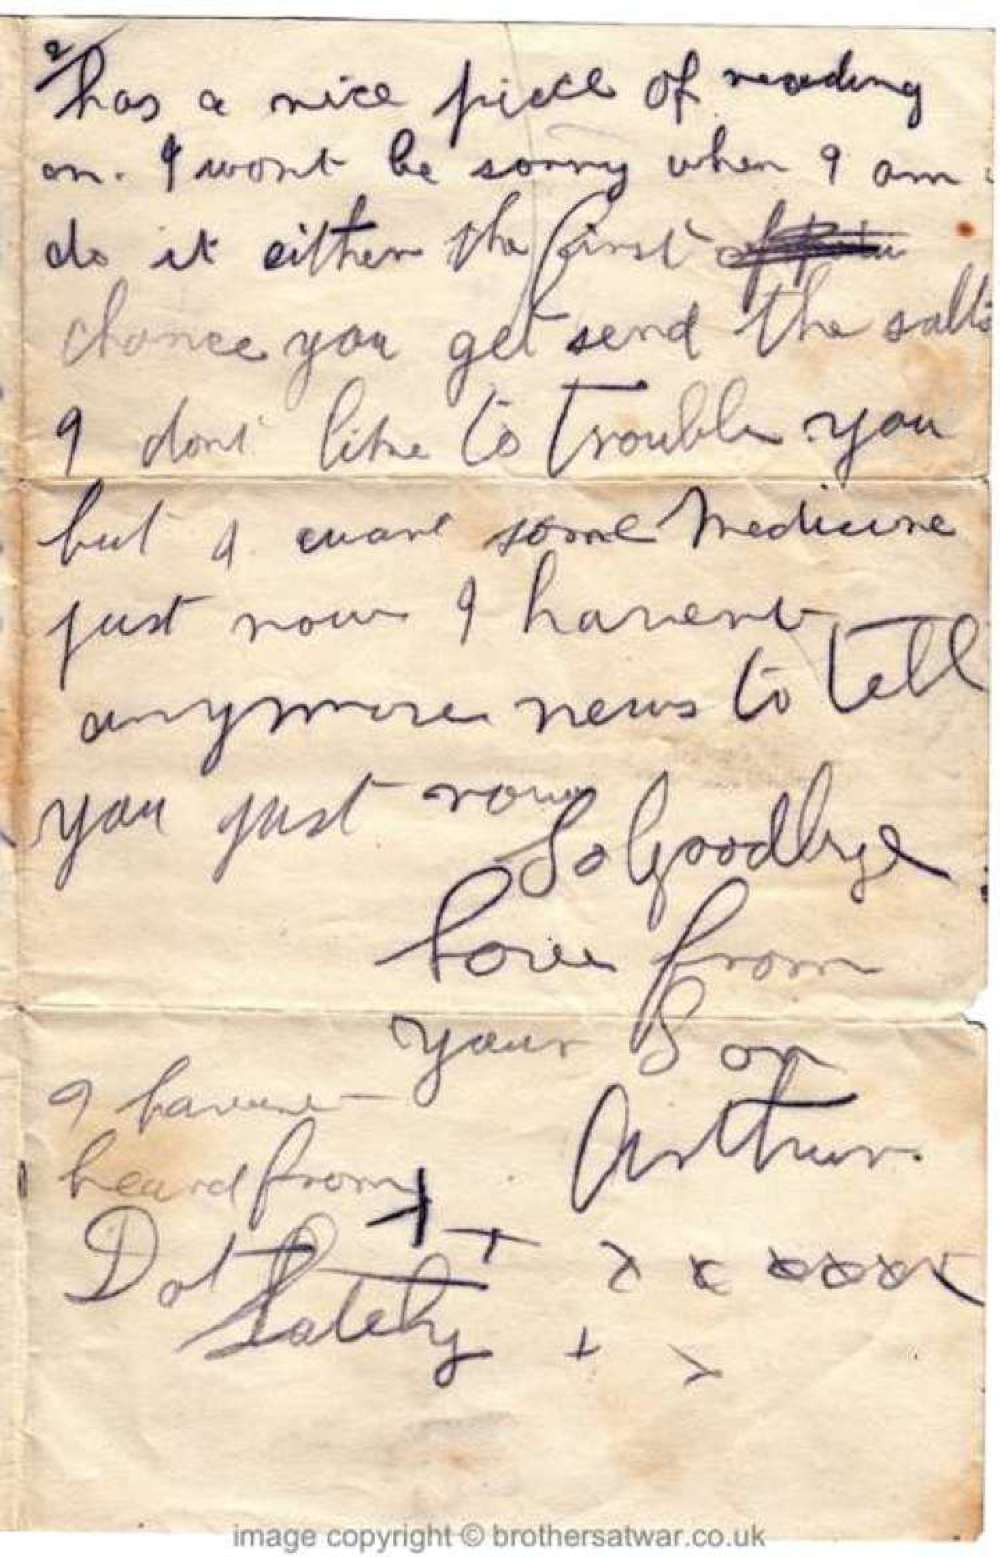 2
has a nice piece of reading
on. I wont be sorry when I am
do it either the first
chance you get send the salts
I dont like to trouble you
but I want some Medicine
just now I havent
anymore news to tell
you just now
So Goodbye
Love from
your Son
Arthur
I havent
heard from
Dot
Lately
+ + x x x x x x x
+ x
image copyright © brothersatwar.co.uk